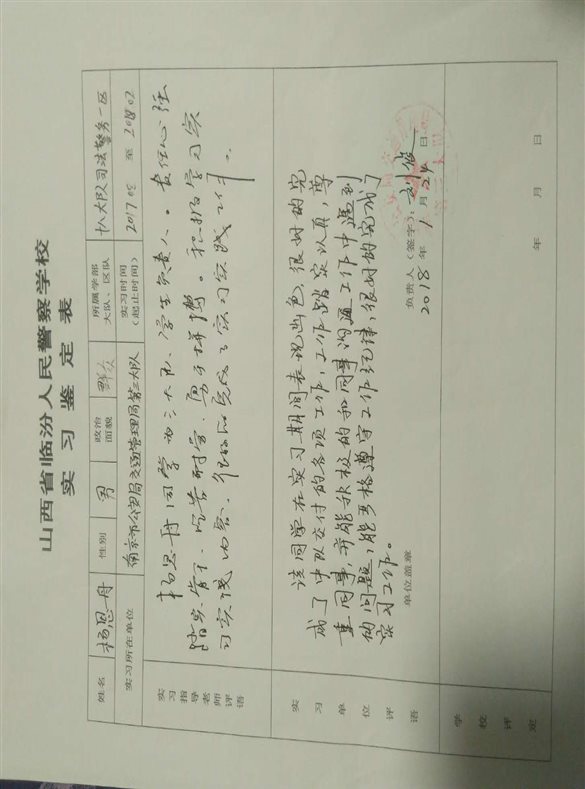 山西省临汾人民警察学校
实习鉴定表
姓名 杨思丹 性别 男 政治面貌 群众 所属学部大队、区队 十八大队司法警务一区
实习所在单位 南京市公安局交通管理局第三大队 实习时间(起止时间) 2017 05 至 2018 02
实习指导老师评语
杨思丹同学为三大队学生负责人。责任心强
踏实肯干、吃苦耐劳、勇于拼搏。积极学习实
习实践内容、很好的完成了实习实践工作。
实习单位评语
该同学在实习期间表现出色,很好的完
成了中队交付的各项工作,工作踏实认真,尊
重同事,并能积极的和同事沟通工作中遇到
的问题,能严格遵守工作纪律,很好的完成了
实习工作。
单位盖章
负责人(签字):刘俊
2018年 1月24日
学校评定
年 月 日